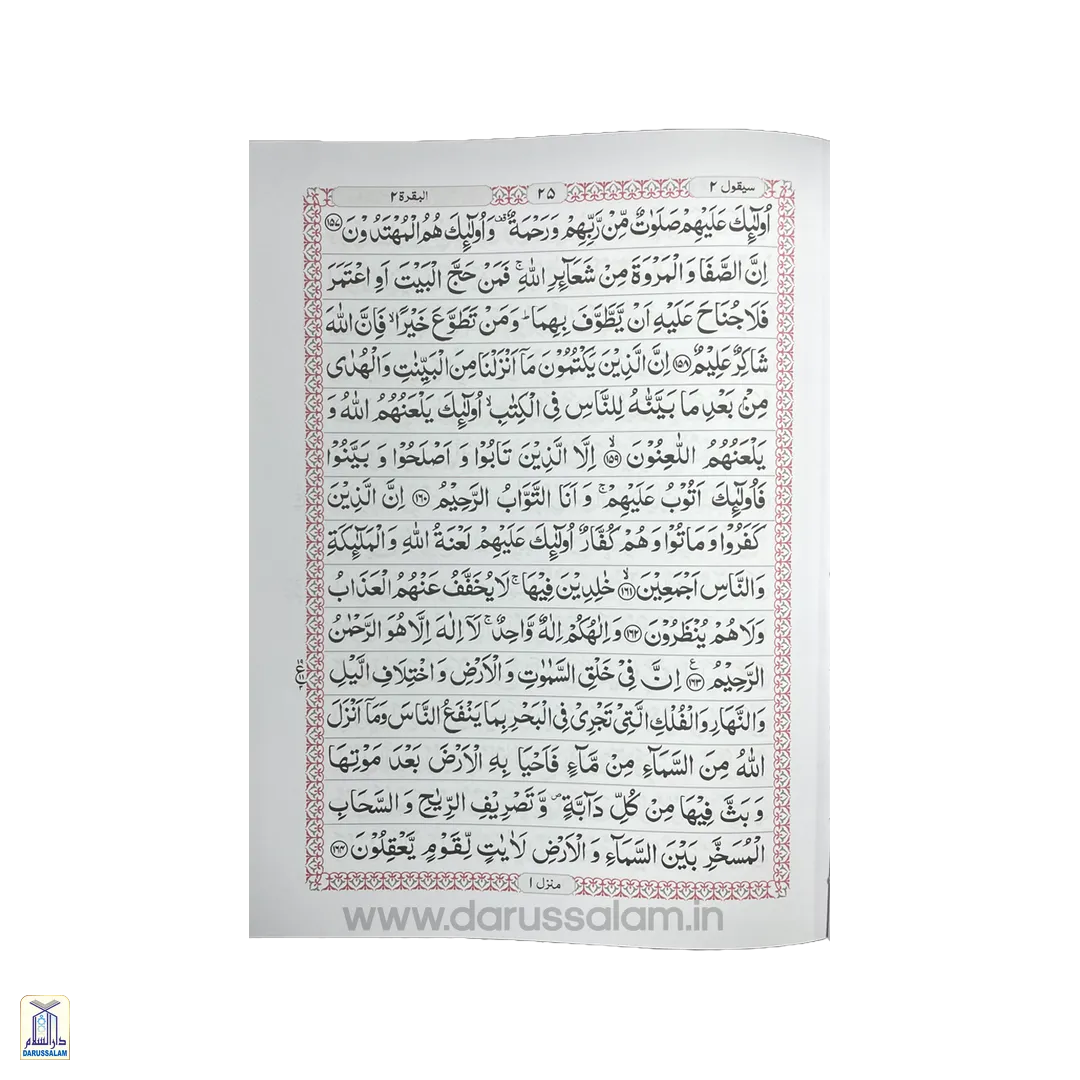 سيقول ٢
٢٥
البقرة ٢
اُولٰٓئِكَ عَلَيْهِمْ صَلَوٰتٌ مِّنْ رَّبِّهِمْ وَرَحْمَةٌ ۫ وَاُولٰٓئِكَ هُمُ الْمُهْتَدُوْنَ ﴿۱۵۷﴾
اِنَّ الصَّفَا وَ الْمَرْوَةَ مِنْ شَعَآئِرِ اللّٰهِ ۚ فَمَنْ حَجَّ الْبَيْتَ اَوِ اعْتَمَرَ
فَلَا جُنَاحَ عَلَيْهِ اَنْ يَّطَّوَّفَ بِهِمَا ؕ وَمَنْ تَطَوَّعَ خَيْرًا ۙ فَاِنَّ اللّٰهَ
شَاكِرٌ عَلِيْمٌ ﴿۱۵۸﴾ اِنَّ الَّذِيْنَ يَكْتُمُوْنَ مَاۤ اَنْزَلْنَا مِنَ الْبَيِّنٰتِ وَالْهُدٰى
مِنْۢ بَعْدِ مَا بَيَّنّٰهُ لِلنَّاسِ فِى الْكِتٰبِ ۙ اُولٰٓئِكَ يَلْعَنُهُمُ اللّٰهُ وَ
يَلْعَنُهُمُ اللّٰعِنُوْنَ ﴿۱۵۹﴾ۙ اِلَّا الَّذِيْنَ تَابُوْا وَ اَصْلَحُوْا وَ بَيَّنُوْا
فَاُولٰٓئِكَ اَتُوْبُ عَلَيْهِمْ ۚ وَ اَنَا التَّوَّابُ الرَّحِيْمُ ﴿۱۶۰﴾ اِنَّ الَّذِيْنَ
كَفَرُوْا وَ مَاتُوْا وَ هُمْ كُفَّارٌ اُولٰٓئِكَ عَلَيْهِمْ لَعْنَةُ اللّٰهِ وَ الْمَلٰٓئِكَةِ
وَالنَّاسِ اَجْمَعِيْنَ ﴿۱۶۱﴾ۙ خٰلِدِيْنَ فِيْهَا ۚ لَا يُخَفَّفُ عَنْهُمُ الْعَذَابُ
وَلَا هُمْ يُنْظَرُوْنَ ﴿۱۶۲﴾ وَ اِلٰهُكُمْ اِلٰهٌ وَّاحِدٌ ۚ لَاۤ اِلٰهَ اِلَّا هُوَ الرَّحْمٰنُ
الرَّحِيْمُ ﴿۱۶۳﴾ اِنَّ فِىْ خَلْقِ السَّمٰوٰتِ وَ الْاَرْضِ وَ اخْتِلَافِ الَّيْلِ
وَالنَّهَارِ وَالْفُلْكِ الَّتِىْ تَجْرِىْ فِى الْبَحْرِ بِمَا يَنْفَعُ النَّاسَ وَمَاۤ اَنْزَلَ
اللّٰهُ مِنَ السَّمَآءِ مِنْ مَّآءٍ فَاَحْيَا بِهِ الْاَرْضَ بَعْدَ مَوْتِهَا
وَ بَثَّ فِيْهَا مِنْ كُلِّ دَآبَّةٍ ۪ وَّ تَصْرِيْفِ الرِّيٰحِ وَ السَّحَابِ
الْمُسَخَّرِ بَيْنَ السَّمَآءِ وَ الْاَرْضِ لَاٰيٰتٍ لِّقَوْمٍ يَّعْقِلُوْنَ ﴿۱۶۴﴾
منزل ١
www.darussalam.in
دار السلام
DARUSSALAM